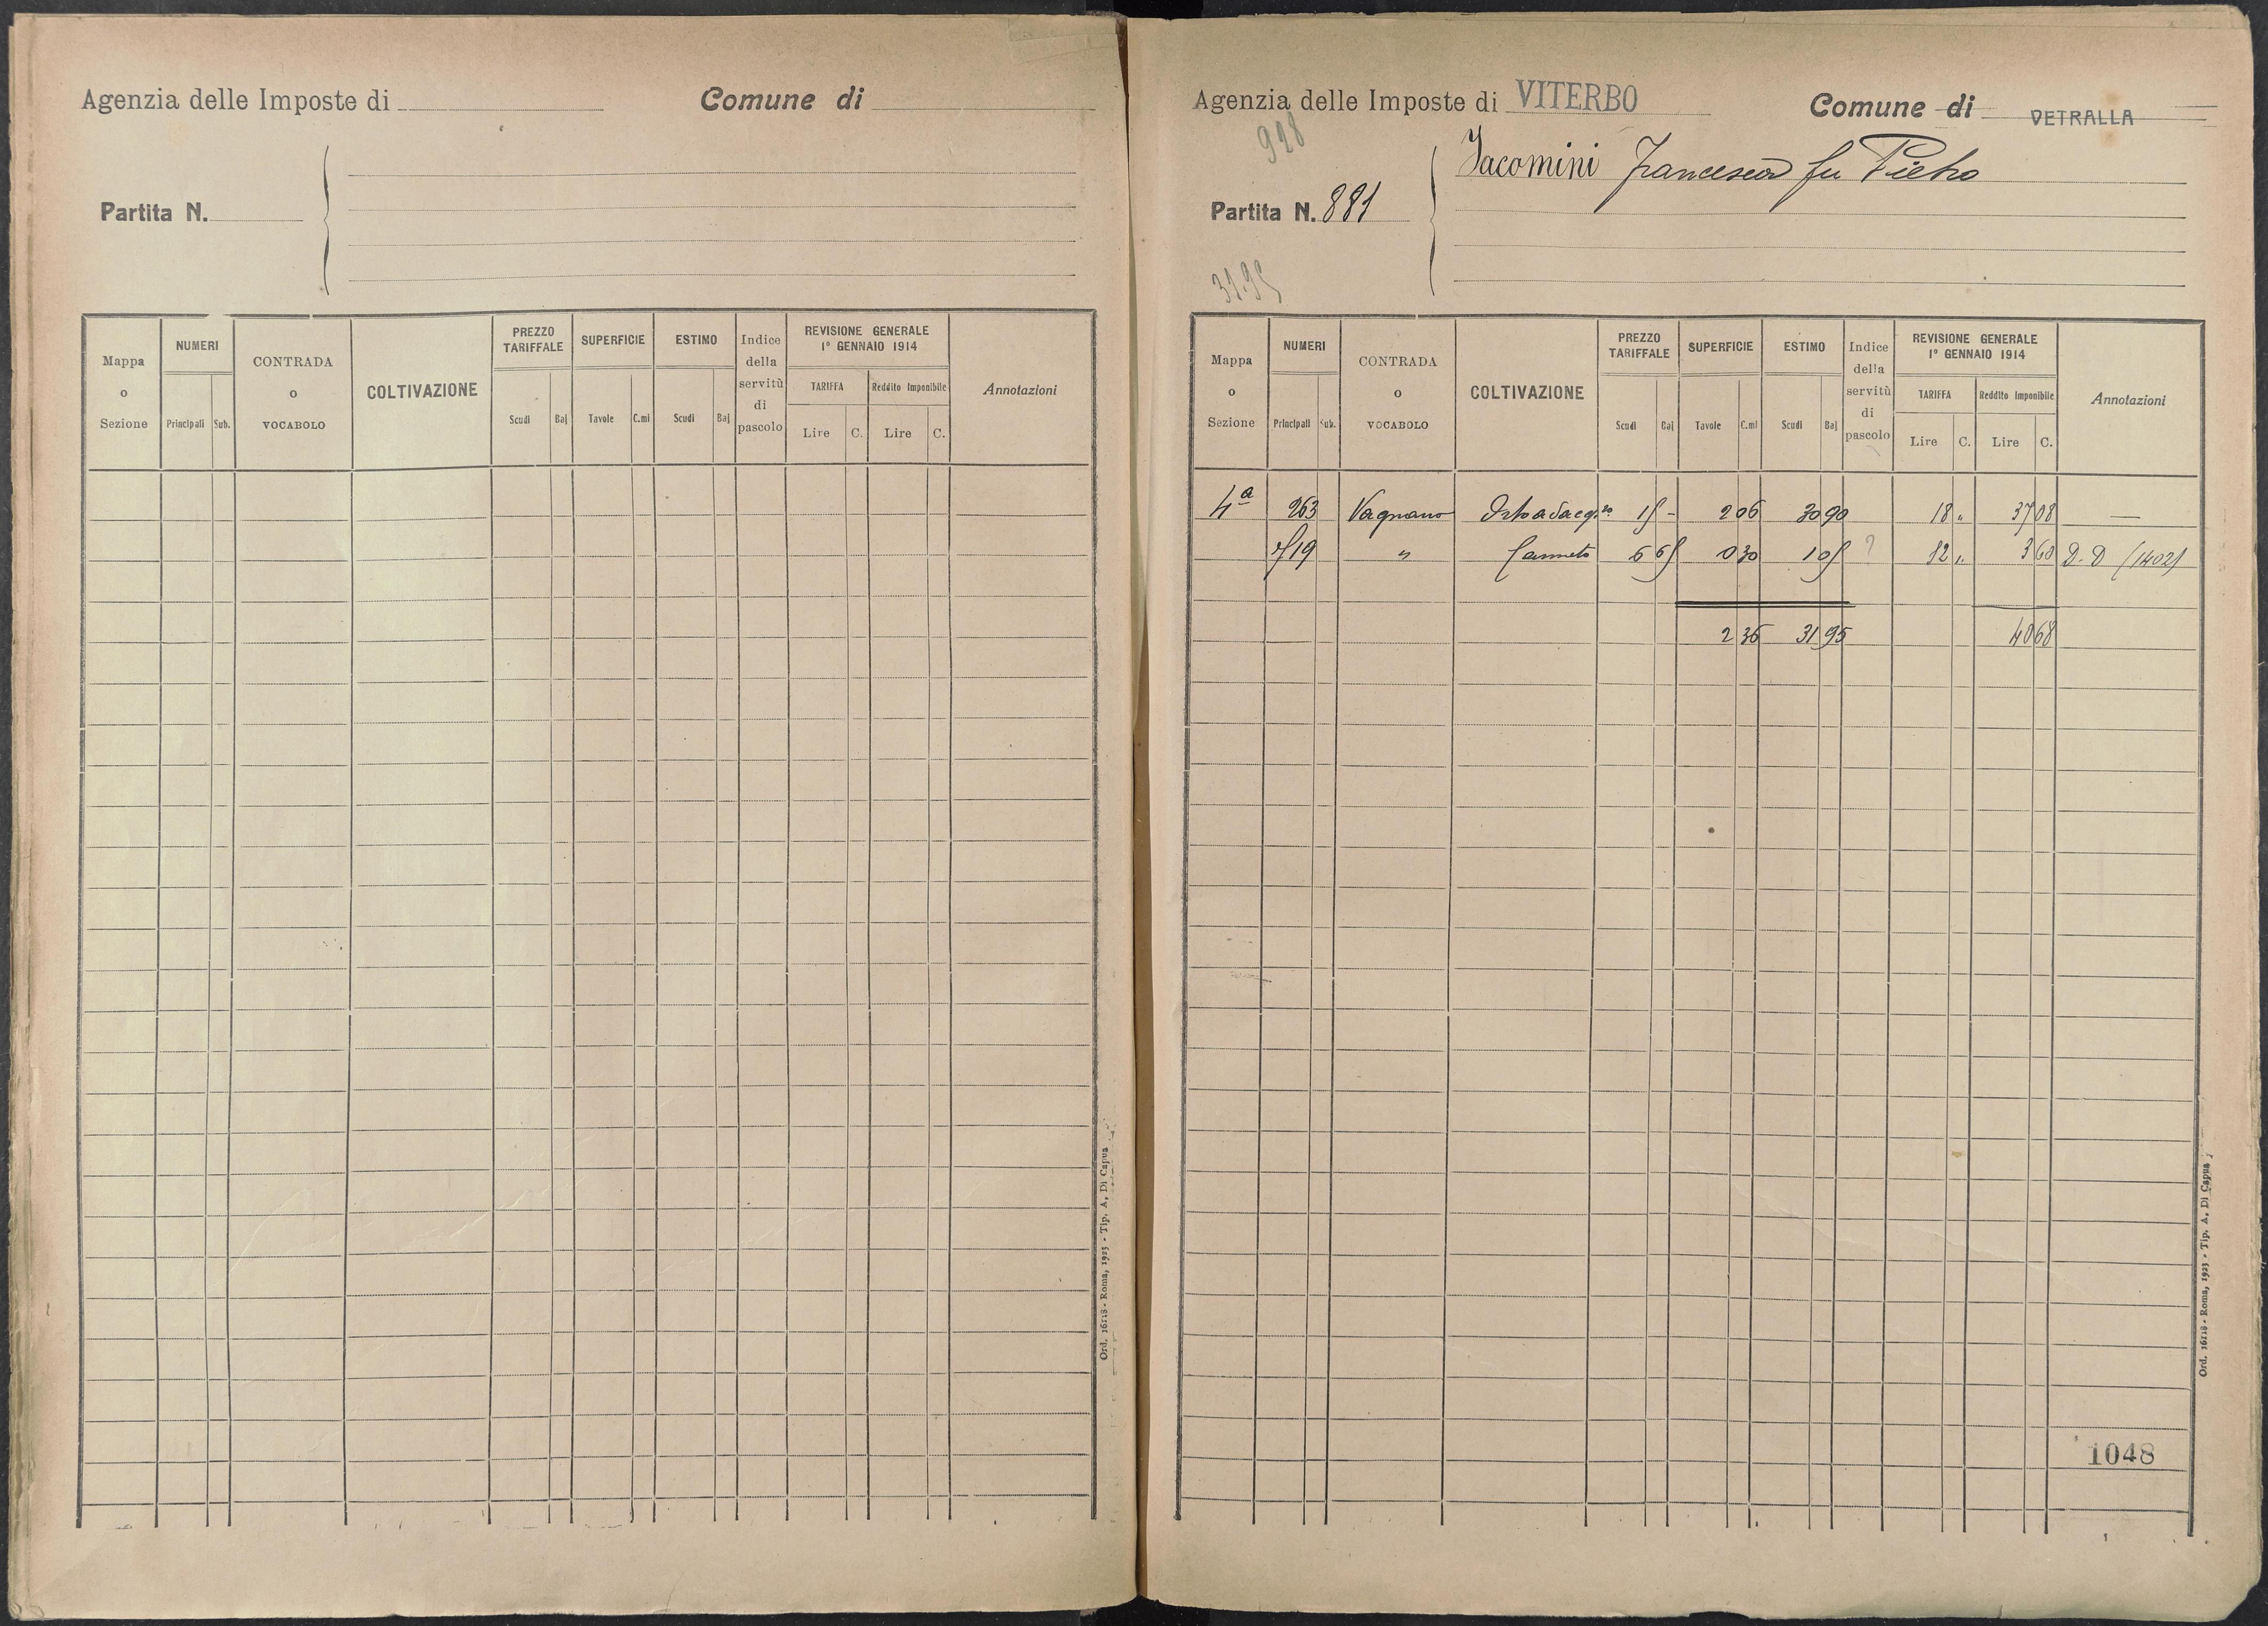 Agenzia delle Imposte di
Comune di
Partita N.
Mappa o Sezione
NUMERI
Principali Sub.
CONTRADA o VOCABOLO
COLTIVAZIONE
PREZZO TARIFFALE
Scudi Baj
SUPERFICIE
Tavole C.mi
ESTIMO
Scudi Baj
Indice della servitù di pascolo
REVISIONE GENERALE
1° GENNAIO 1914
TARIFFA Reddito Imponibile
Lire C. Lire C.
Annotazioni
Ord. 16118 - Roma, 1923 - Tip. A. Di Capua
Agenzia delle Imposte di VITERBO
Comune di VETRALLA
928
Iacomini Francesco fu Pietro
Partita N. 881
31.95
Mappa o Sezione
NUMERI
Principali Sub.
CONTRADA o VOCABOLO
COLTIVAZIONE
PREZZO TARIFFALE
Scudi Baj
SUPERFICIE
Tavole C.mi
ESTIMO
Scudi Baj
Indice della servitù di pascolo
REVISIONE GENERALE
1° GENNAIO 1914
TARIFFA Reddito Imponibile
Lire C. Lire C.
Annotazioni
4ª 263 Vagnano 15 - 2 06 30 90 18 " 37 08 —
519 " Canneto 0 30 1 05 ? 12 " 3 60 D. D (1402)
2 36 31 95 40 68
1048
Ord. 16118 - Roma, 1923 - Tip. A. Di Capua